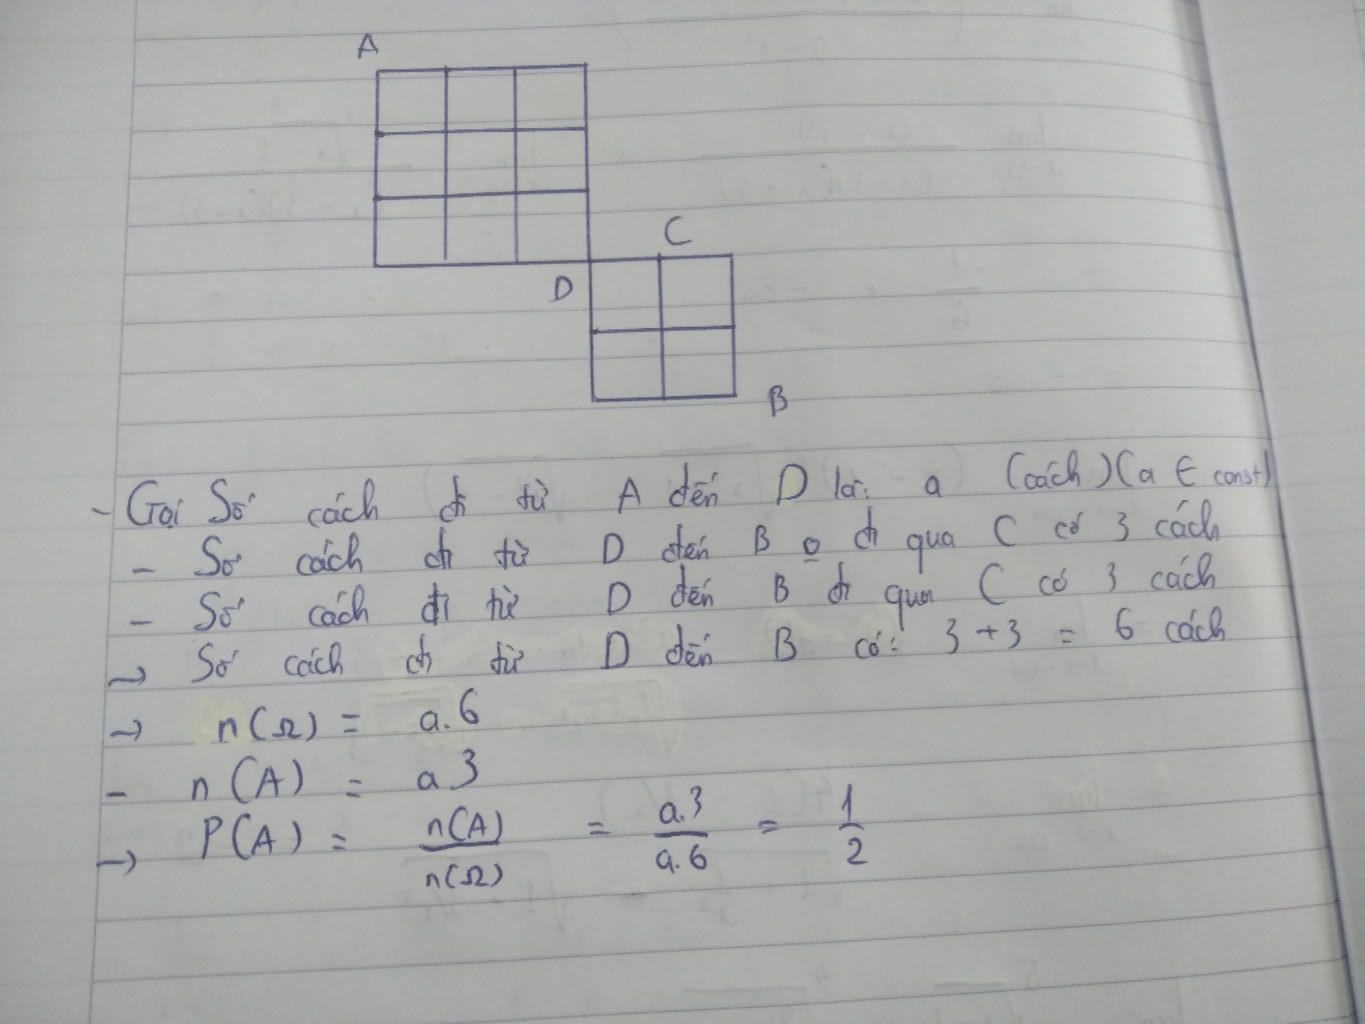 A
C
D
B
- Gọi Số cách đi từ A đến D là: a (cách) (a ∈ const)
- Số cách đi từ D đến B o đi qua C có 3 cách
- Số cách đi từ D đến B đi qua C có 3 cách
→ Số cách đi từ D đến B có: 3 + 3 = 6 cách
→ n(Ω) = a.6
- n(A) = a3
→ P(A) = n(A)/n(Ω) = a.3/a.6 = 1/2